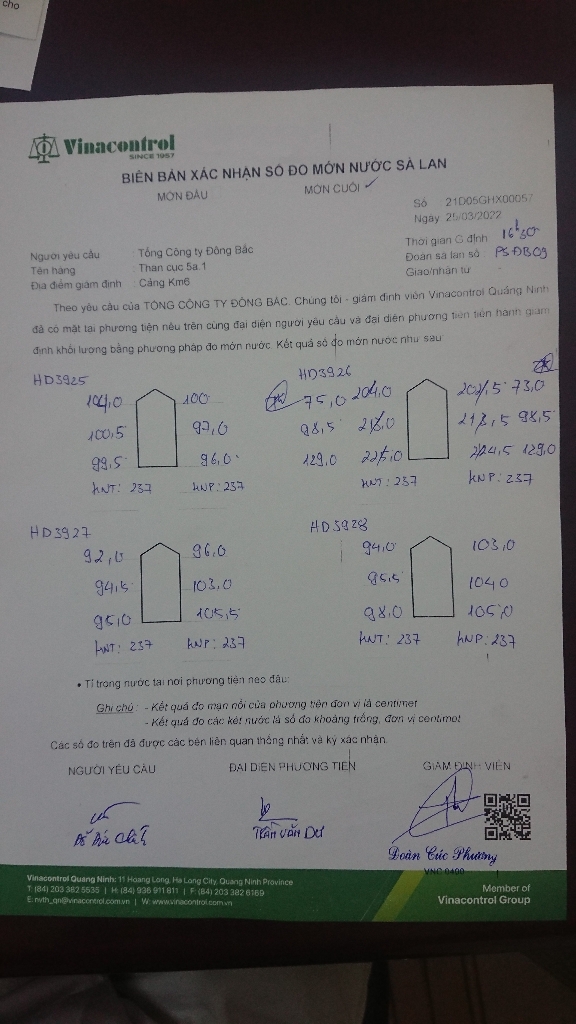 cho
Vinacontrol
SINCE 1957
BIÊN BẢN XÁC NHẬN SỐ ĐO MỚN NƯỚC SÀ LAN
MỚN ĐẦU MỚN CUỐI ✓
Số 21D05GHX00057
Ngày 25/03/2022
Người yêu cầu : Tổng Công ty Đông Bắc
Thời gian G định 16h30
Tên hàng : Than cục 5a.1
Đoàn sà lan số : PSĐB09
Địa điểm giám định : Cảng Km6
Giao/nhận từ
Theo yêu cầu của TỔNG CÔNG TY ĐÔNG BẮC. Chúng tôi - giám định viên Vinacontrol Quảng Ninh
đã có mặt tại phương tiện nêu trên cùng đại diện người yêu cầu và đại diện phương tiện tiến hành giám
định khối lượng bằng phương pháp đo mớn nước. Kết quả số đo mớn nước như sau
HD3925
104,0 100
100,5 97,0
99,5 96,0
hNT: 237 hNP: 237
HD3926
75,0 204,0 73,0
98,5 98,5
129,0 129,0
hNT: 237 hNP: 237
HD3927
92,0 96,0
94,5 103,0
95,0 105,5
hNT: 237 hNP: 237
HD3928
94,0 103,0
95,5 104,0
98,0 105,0
hNT: 237 hNP: 237
• Tỉ trọng nước tại nơi phương tiện neo đậu:
Ghi chú : - Kết quả đo mạn nổi của phương tiện đơn vị là centimet
- Kết quả đo các két nước là số đo khoảng trống, đơn vị centimet
Các số đo trên đã được các bên liên quan thống nhất và ký xác nhận.
NGƯỜI YÊU CẦU ĐẠI DIỆN PHƯƠNG TIỆN GIÁM ĐỊNH VIÊN
Trần Văn Dư
Đoàn Cúc Phương
VNC 0400
Vinacontrol Quang Ninh: 11 Hoang Long, Ha Long City, Quang Ninh Province
T: (84) 203 382 5535 | H: (84) 936 911 811 | F: (84) 203 382 6169
E: nvth_qn@vinacontrol.com.vn | W: www.vinacontrol.com.vn
Member of
Vinacontrol Group